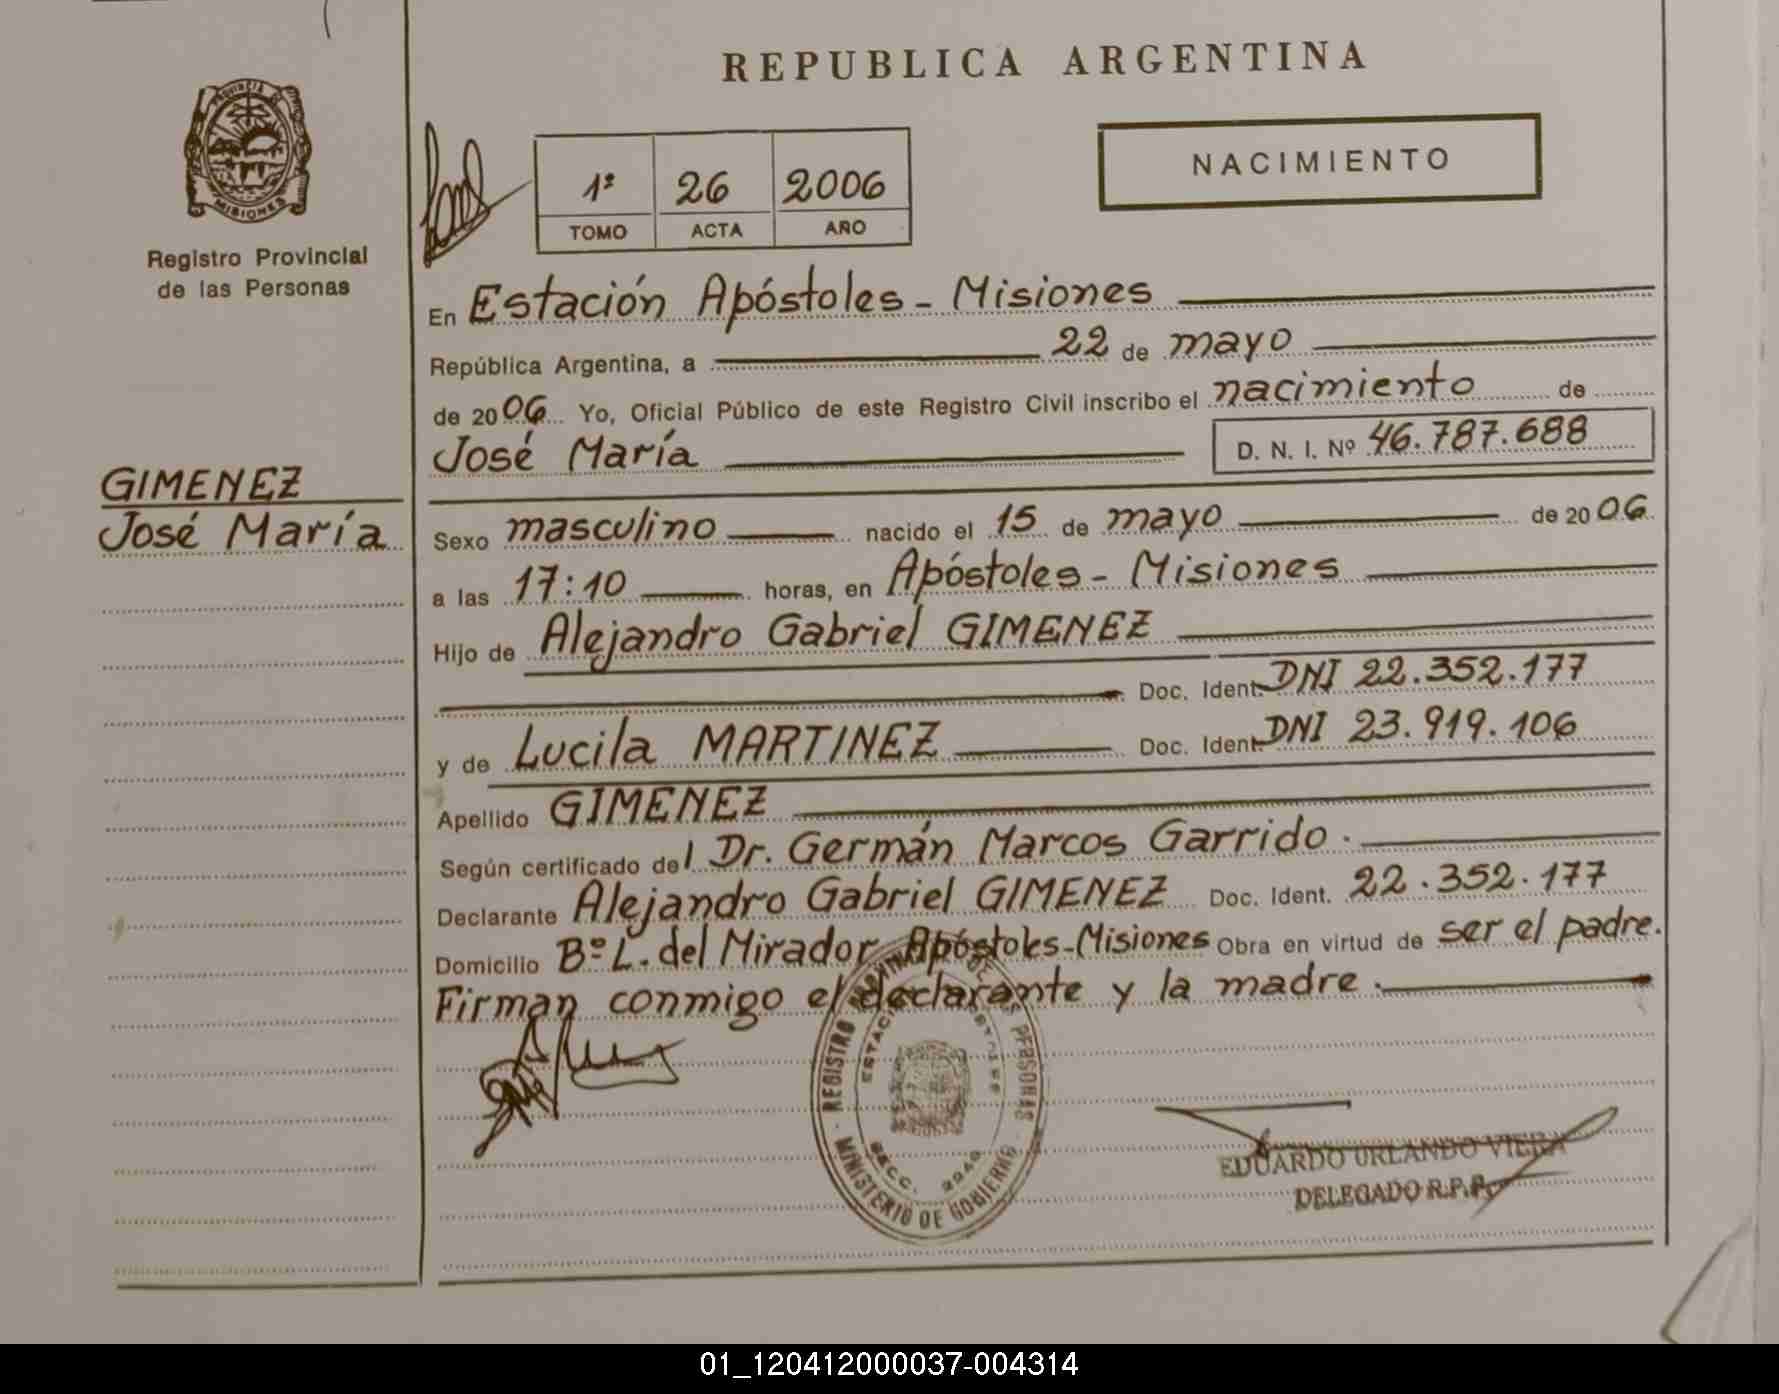 REPUBLICA ARGENTINA
PROVINCIA DE
MISIONES
Registro Provincial
de las Personas
1º 26 2006
TOMO ACTA AÑO
NACIMIENTO
En Estación Apóstoles - Misiones
República Argentina, a 22 de mayo
de 2006 Yo, Oficial Público de este Registro Civil inscribo el nacimiento de
José María D. N. I. Nº 46.787.688
GIMENEZ
José María
Sexo masculino nacido el 15 de mayo de 2006
a las 17:10 horas, en Apóstoles - Misiones
Hijo de Alejandro Gabriel GIMENEZ
Doc. Ident. DNI 22.352.177
y de Lucila MARTINEZ Doc. Ident. DNI 23.919.106
Apellido GIMENEZ
Según certificado del Dr. Germán Marcos Garrido.
Declarante Alejandro Gabriel GIMENEZ Doc. Ident. 22.352.177
Domicilio Bº L. del Mirador, Apóstoles-Misiones Obra en virtud de ser el padre.
Firman conmigo el declarante y la madre.
REGISTRO DE LAS PERSONAS
MINISTERIO DE GOBIERNO
SECC.
EDUARDO URLANDO VIERA
DELEGADO R.P.P.
01_120412000037-004314